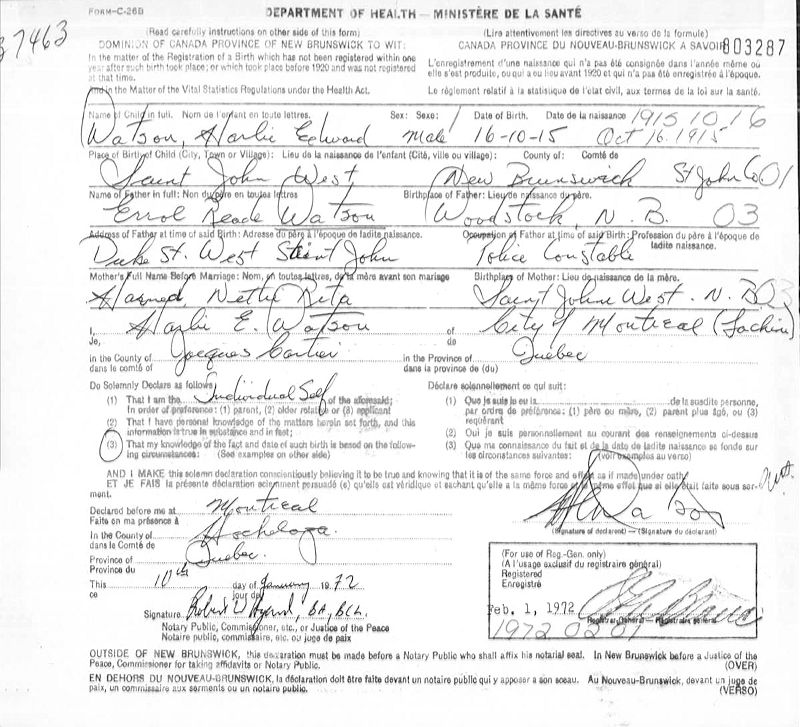 FORM-C-26B
DEPARTMENT OF HEALTH — MINISTÈRE DE LA SANTÉ
37463
(Read carefully instructions on other side of this form)
(Lire attentivement les directives au verso de la formule)
DOMINION OF CANADA PROVINCE OF NEW BRUNSWICK TO WIT:
CANADA PROVINCE DU NOUVEAU-BRUNSWICK A SAVOIR
803287
In the matter of the Registration of a Birth which has not been registered within one
year after such birth took place; or which took place before 1920 and was not registered
at that time.
L'enregistrement d'une naissance qui n'a pas été consignée dans l'année même où
elle s'est produite, ou qui a eu lieu avant 1920 et qui n'a pas été enregistrée à l'époque.
And in the Matter of the Vital Statistics Regulations under the Health Act.
Le règlement relatif à la statistique de l'état civil, aux termes de la loi sur la santé.
Name of Child in full. Nom de l'enfant en toute lettres. Sex: Sexe: Date of Birth. Date de la naissance
1915 10 16
Watson, Harlie Edward Male 16-10-15 Oct 16. 1915
Place of Birth of Child (City, Town or Village): Lieu de la naissance de l'enfant (Cité, ville ou village): County of: Comté de
Saint John West, New Brunswick St John Co 01
Name of Father in full: Non du père en toutes lettres Birthplace of Father: Lieu de naissance du père.
Errol Reade Watson Woodstock, N. B. 03
Address of Father at time of said Birth: Adresse du père à l'époque de ladite naissance. Occupation of Father at time of said Birth: Profession du père à l'époque de
ladite naissance.
Duke St. West Saint John Police Constable
Mother's Full Name Before Marriage: Nom, en toutes lettres, de la mère avant son mariage Birthplace of Mother: Lieu de naissance de la mère.
Nettie Rita Saint John West. N. B 03
I, Harlie E. Watson of City of Montreal (Lachine)
Je, de
in the County of Jacques Cartier in the Province of Quebec
dans le comté of dans la province de (du)
Do Solemnly Declare as follows
Déclare solennellement ce qui suit:
(1) That I am the Individual Self of the aforesaid;
In order of preference: (1) parent, (2) older relative or (3) applicant
(2) That I have personal knowledge of the matters herein set forth, and this
information is true in substance and in fact;
(3) That my knowledge of the fact and date of such birth is based on the follow-
ing circumstances: (See examples on other side)
(1) Que je suis le eu la de la susdite personne,
par ordre de préférence: (1) père ou mère, (2) parent plus âgé, ou (3)
requérant
(2) Qui je suis personnellement au courant des renseignements ci-dessus
(3) Que ma connaissance du fait et de la date de ladite naissance se fonde sur
les circonstances suivantes: (voir exemples au verso)
AND I MAKE this solemn declaration conscientiously believing it to be true and knowing that it is of the same force and effect as if made under oath
ET JE FAIS la présente déclaration solennement persuadé (e) qu'elle est véridique et sachant qu'elle a la même force et le même effet que si elle était faite sous ser-
ment.
Declared before me at Montreal
Faite en ma présence à
In the County of Hochelaga.
dans le Comté de
Province of Quebec.
Province du
This 10th day of January 1972
ce jour de
Signature Robert W , BA, BCL.
Notary Public, Commissioner, etc., or Justice of the Peace
Notaire public, commissaire, etc. ou juge de paix
H E Watson
(Signature of declarent) — (Signature du déclarant)
(For use of Reg.-Gen. only)
(A l'usage exclusif du registraire général)
Registered
Enregistré
Feb. 1, 1972
Registrar-General — Registraire general
1972 02 01
OUTSIDE OF NEW BRUNSWICK, this declaration must be made before a Notary Public who shall affix his notarial seal. In New Brunswick before a Justice of the
Peace, Commissioner for taking affidavits or Notary Public. (OVER)
EN DEHORS DU NOUVEAU-BRUNSWICK, la déclaration doit être faite devant un notaire public qui y apposer a son sceau. Au Nouveau-Brunswick, devant un juge de
paix, un commissaire aux serments ou un notaire public. (VERSO)